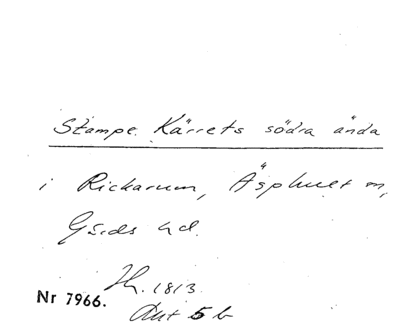 Stampe Kärrets södra ända
i Rickarum, Äsphult sn,
Gärds hd.
Th. 1813
Akt 5 b
Nr 7966.